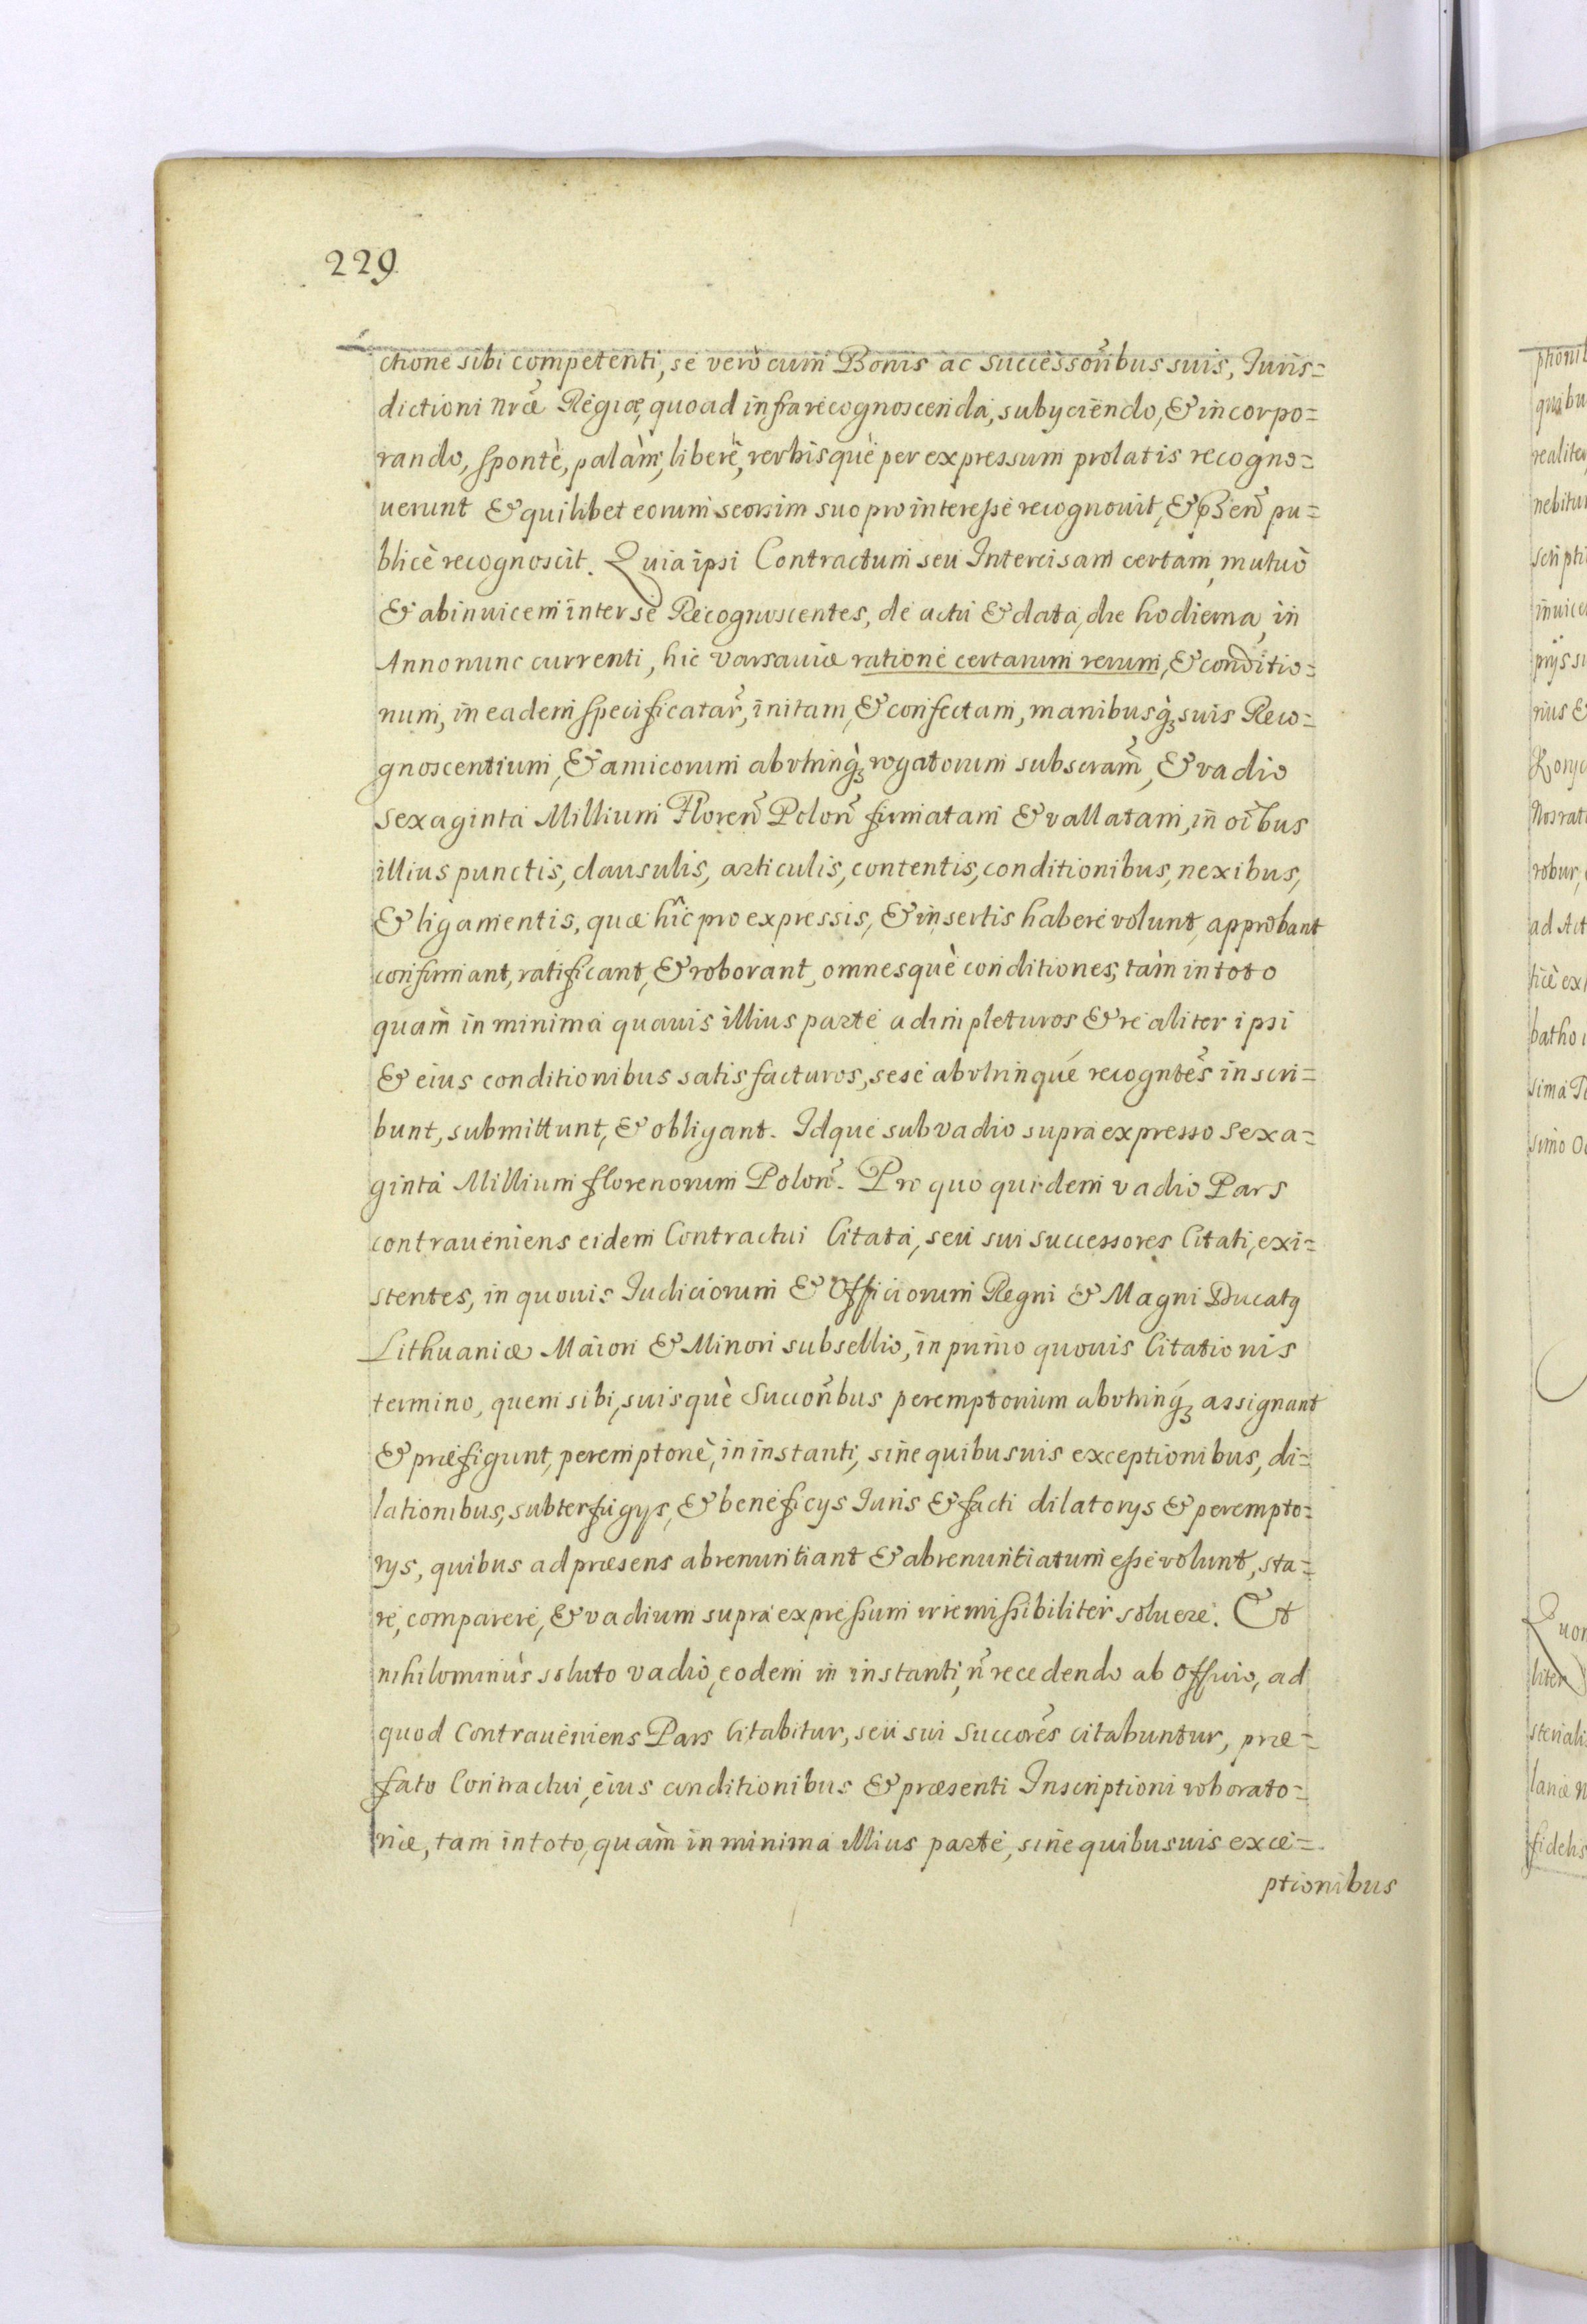 229
ctione sibi competenti, se verò cum Bonis ac successoribus suis, Juris=
dictioni nrae Regiae, quoad infra recognoscenda, subyciendo, & incorpo=
rando, sponte, palàm, liberè, verbisquè per expressum prolatis recogno=
uerunt & quilibet eorum seorsim suo pro interesse recognouit, & psen pu=
blicè recognoscit. Quia ipsi Contractum seu Intercisam certam, mutuò
& abinuicem inter se Recognoscentes, de actu & data, die hodierna, in
Anno nunc currenti, hic Varsauiae ratione certarum rerum, & conditio=
num, in eadem specificatar, initam, & confectam, manibusq; suis Reco=
gnoscentium, & amicorum abvtrinq; rogatorum subscram, & vadio
sexaginta Millium Floren Polon firmatam & vallatam, in oibus
illius punctis, clausulis, articulis, contentis, conditionibus, nexibus,
& ligamentis, quae hîc pro expressis, & insertis habere volunt, approbant
confirmant, ratificant, & roborant, omnesquè conditiones, tàm in toto
quam in minima quauis illius parte adimpleturos & realiter ipsi
& eius conditionibus satisfacturos, sese abvtrinque recogntes inscri=
bunt, submittunt, & obligant. Idque sub vadio supra expresso sexa=
ginta Millium florenorum Polon. Pro quo quidem vadio Pars
contraueniens eidem Contractui Citata, seu sui successores Citati, exi=
stentes, in quouis Iudiciorum & Officiorum Regni & Magni Ducatq
Lithuaniae Maiori & Minori subsellio, in primo quouis Citationis
termino, quem sibi, suisquè Succoribus peremptorium abvtrinq; assignant
& praefigunt, peremptoriè, in instanti, sine quibusuis exceptionibus, di=
lationibus, subterfugys, & beneficys Iuris & facti dilatorys & perempto=
rys, quibus ad praesens abrenuntiant & abrenuntiatum esse volunt, sta=
re, comparere, & vadium supra expressum irremissibiliter soluere. Et
nihilominùs soluto vadio, eodem in instanti, n recedendo ab Officio, ad
quod Contraueniens Pars Citabitur, seu sui Succores citabuntur, prae=
fato Contractui, eius conditionibus & praesenti Inscriptioni roborato=
riae, tam in toto, quàm in minima illius parte, sine quibusuis exce=
ptionibus